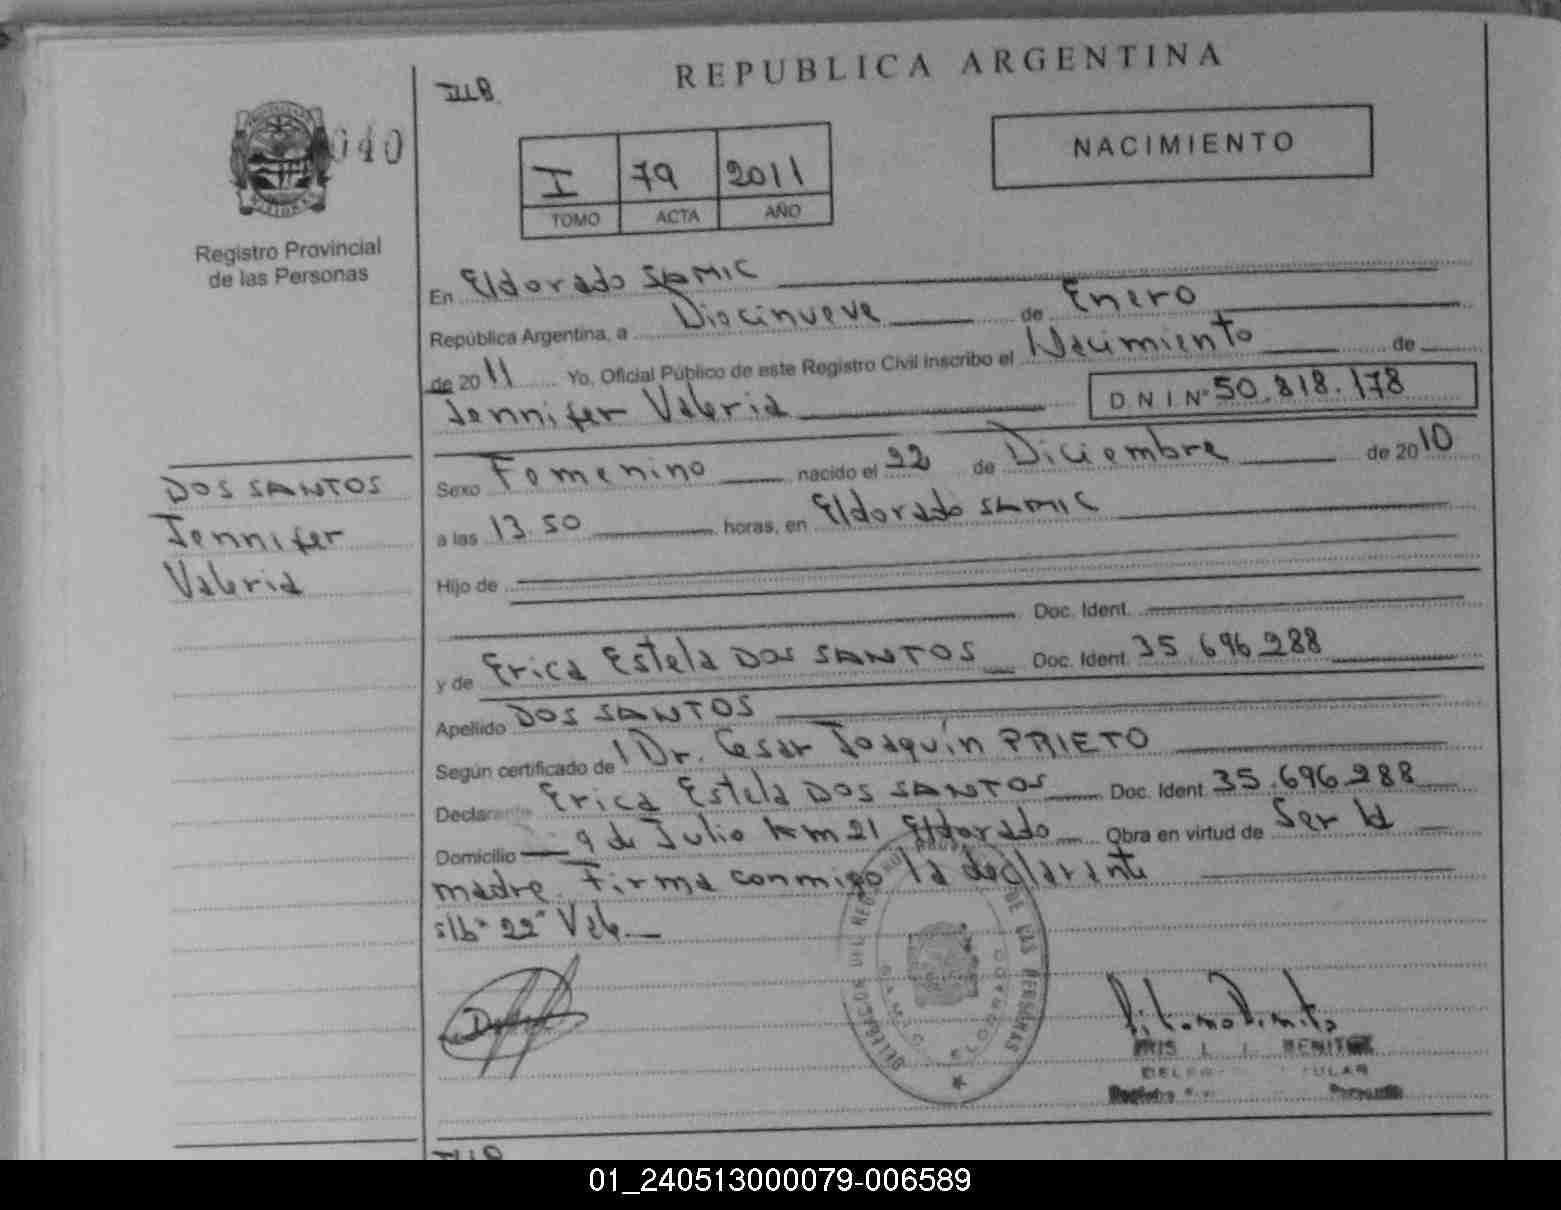 REPUBLICA ARGENTINA
040
NACIMIENTO
I 79 2011
TOMO ACTA AÑO
Registro Provincial
de las Personas
En Eldorado SAMIC
República Argentina, a Diecinueve de Enero
de 2011 Yo, Oficial Público de este Registro Civil inscribo el Nacimiento de
Jennifer Valeria D N I Nº 50.818.178
DOS SANTOS
Jennifer
Valeria
Sexo Femenino nacido el 22 de Diciembre de 2010
a las 13.50 horas, en Eldorado SAMIC
Hijo de
Doc. Ident.
y de Erica Estela DOS SANTOS Doc. Ident. 35.696.288
Apellido DOS SANTOS
Según certificado de Dr. Cesar Joaquín PRIETO
Declarante Erica Estela DOS SANTOS Doc. Ident. 35.696.288
Domicilio 9 de Julio km 21 Eldorado Obra en virtud de Ser la
madre. Firma conmigo la declarante
s/b "22" Vale
DELEGACION DEL REGISTRO DE LAS PERSONAS
SAMIC ELDORADO
BENITEZ
01_240513000079-006589